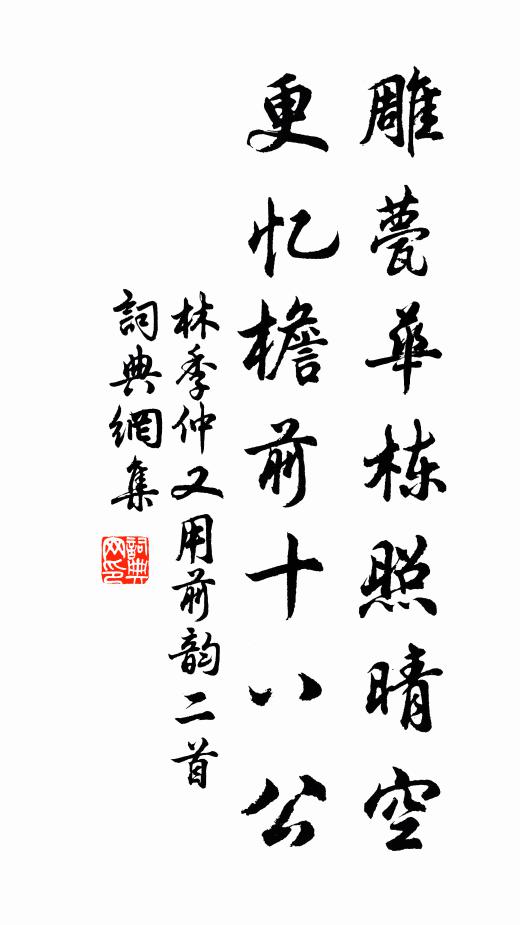 雕甍華栋照晴空
更忆檐前十八公
林季仲又用前韵二首
詞典網集
詞典
网印